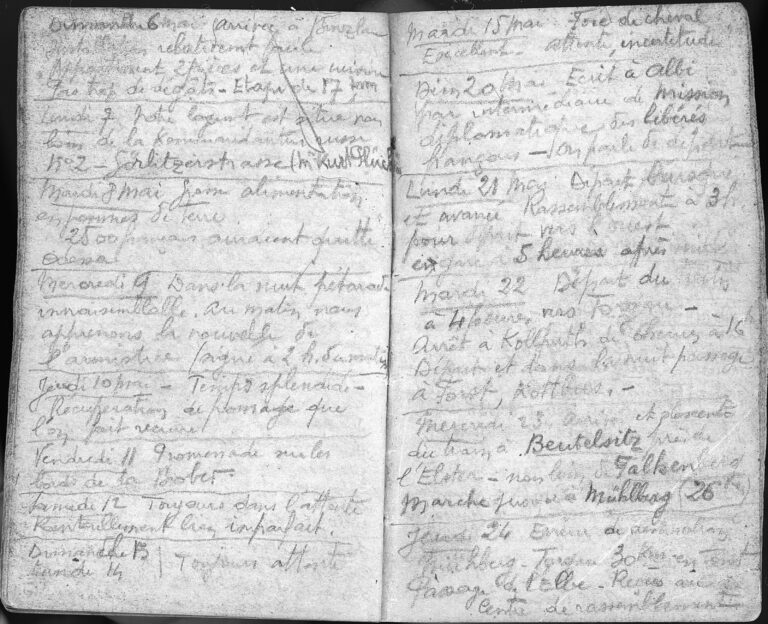 Dimanche 6 mai (arrivée à Bunzlau
Installation relativement facile.
Appartement 2 pièces et une cuisine
Pas trop de dégâts - Etape de 17 km
Lundi 7 Notre logement est situé non
loin de la Kommandantur russe
Nº 2 - Görlitzerstrasse (
Mardi 8 mai alimentation
en pommes de terre
2500 français auraient quitté
Odessa
Mercredi 9 Dans la nuit pétarade
invraisemblable. Au matin nous
apprenons la nouvelle de
l'armistice (signé à 2 h. du matin
Jeudi 10 mai - Temps splendide -
Récupération de fromage que
l'on fait
Vendredi 11 Promenade sur les
bords de la Bober
Samedi 12 Toujours dans l'attente
Ravitaillement bien imparfait.
Dimanche 13
Lundi 14 | Toujours attente
Mardi 15 mai - Foie de cheval
Excellent - attente, incertitude
Dim 20 mai Ecrit à Albi
par intermédiaire de mission
diplomatique des libérés
français - On parle de départ
Lundi 21 Mai Départ brusqué
et avancé Rassemblement à 3 h.
pour départ vers l'ouest.
en gare à 5 heures après midi
Mardi 22 Départ du train
à 4 heures vers
Arrêt à Kohlfurth de à 16 h
Départ et dans la nuit passage
à Forst, Kottbus. -
Mercredi 23 et descente
du train à Beutelsitz près de
l'Elster - non loin de Falkenberg
Marche jusqu'à Mühlberg (26
Jeudi 24 Erreur de destination
Mühlberg - Torgau 30 km en
Passage de l'Elbe - Reçus au
Centre de rassemblement